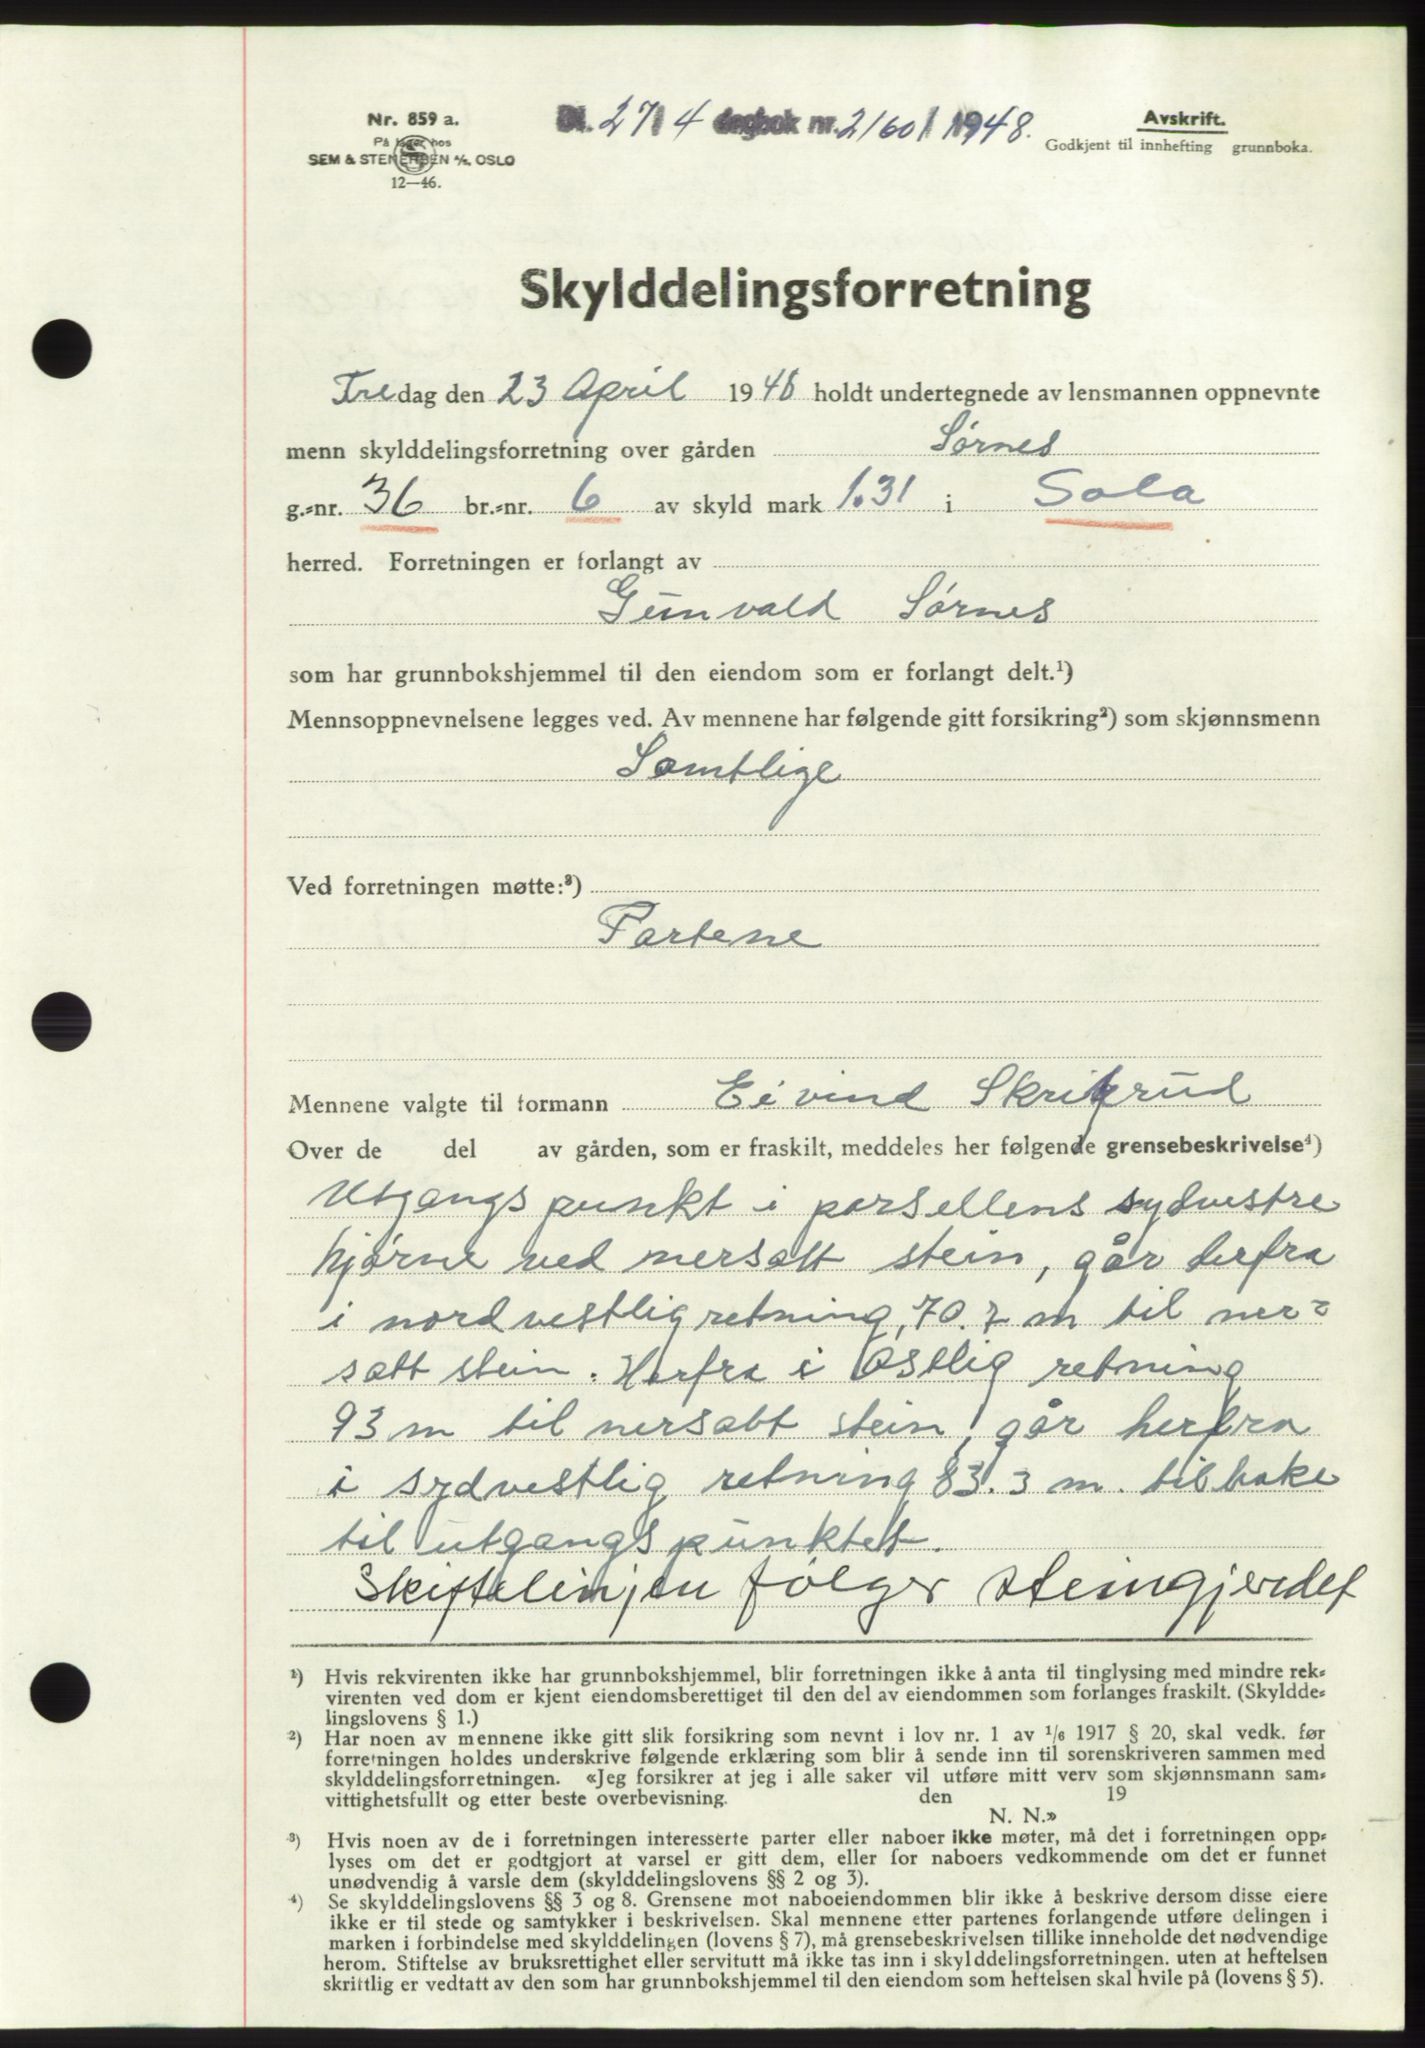 Nr. 859 a.
På lager hos
SEM & STENERSEN A/S, OSLO
12—46.
Bl. 2714 dagbok nr. 2160/1948.
Avskrift.
Godkjent til innhefting grunnboka.
Skylddelingsforretning
Fredag den 23 April 1948 holdt undertegnede av lensmannen oppnevnte
menn skylddelingsforretning over gården Sørnes
g.=nr. 36 br.=nr. 6 av skyld mark 1.31 i Sola
herred. Forretningen er forlangt av
Gunvald Sørnes
som har grunnbokshjemmel til den eiendom som er forlangt delt.¹)
Mennsoppnevnelsene legges ved. Av mennene har følgende gitt forsikring²) som skjønnsmenn
Samtlige
Ved forretningen møtte:³)
Partene
Mennene valgte til formann Eivind Skrikrud
Over de del av gården, som er fraskilt, meddeles her følgende grensebeskrivelse⁴)
Utgangspunkt i parsellens sydvestre
hjørne ved nersatt stein, går herfra
i nordvestlig retning, 70.7 m til ner=
satt stein. Herfra i østlig retning
93 m til nersatt stein, går herfra
i sydvestlig retning 83.3 m. tilbake
til utgangspunktet.
Skiftelinjen følger steingjerdet
¹) Hvis rekvirenten ikke har grunnbokshjemmel, blir forretningen ikke å anta til tinglysing med mindre rek=
virenten ved dom er kjent eiendomsberettiget til den del av eiendommen som forlanges fraskilt. (Skyldde=
lingslovens § 1.)
²) Har noen av mennene ikke gitt slik forsikring som nevnt i lov nr. 1 av ¹/₆ 1917 § 20, skal vedk. før
forretningen holdes underskrive følgende erklæring som blir å sende inn til sorenskriveren sammen med
skylddelingsforretningen. «Jeg forsikrer at jeg i alle saker vil utføre mitt verv som skjønnsmann sam=
vittighetsfullt og etter beste overbevisning. den 19
N. N.»
³) Hvis noen av de i forretningen interesserte parter eller naboer ikke møter, må det i forretningen opp=
lyses om det er godtgjort at varsel er gitt dem, eller for naboers vedkommende om det er funnet
unødvendig å varsle dem (skylddelingslovens §§ 2 og 3).
⁴) Se skylddelingslovens §§ 3 og 8. Grensene mot naboeiendommen blir ikke å beskrive dersom disse eiere
ikke er til stede og samtykker i beskrivelsen. Skal mennene etter partenes forlangende utføre delingen i
marken i forbindelse med skylddelingen (lovens § 7), må grensebeskrivelsen tillike inneholde det nødvendige
herom. Stiftelse av bruksrettighet eller servitutt må ikke tas inn i skylddelingsforretningen. uten at heftelsen
skriftlig er vedtatt av den som har grunnbokshjemmel til den eiendom som heftelsen skal hvile på (lovens § 5).